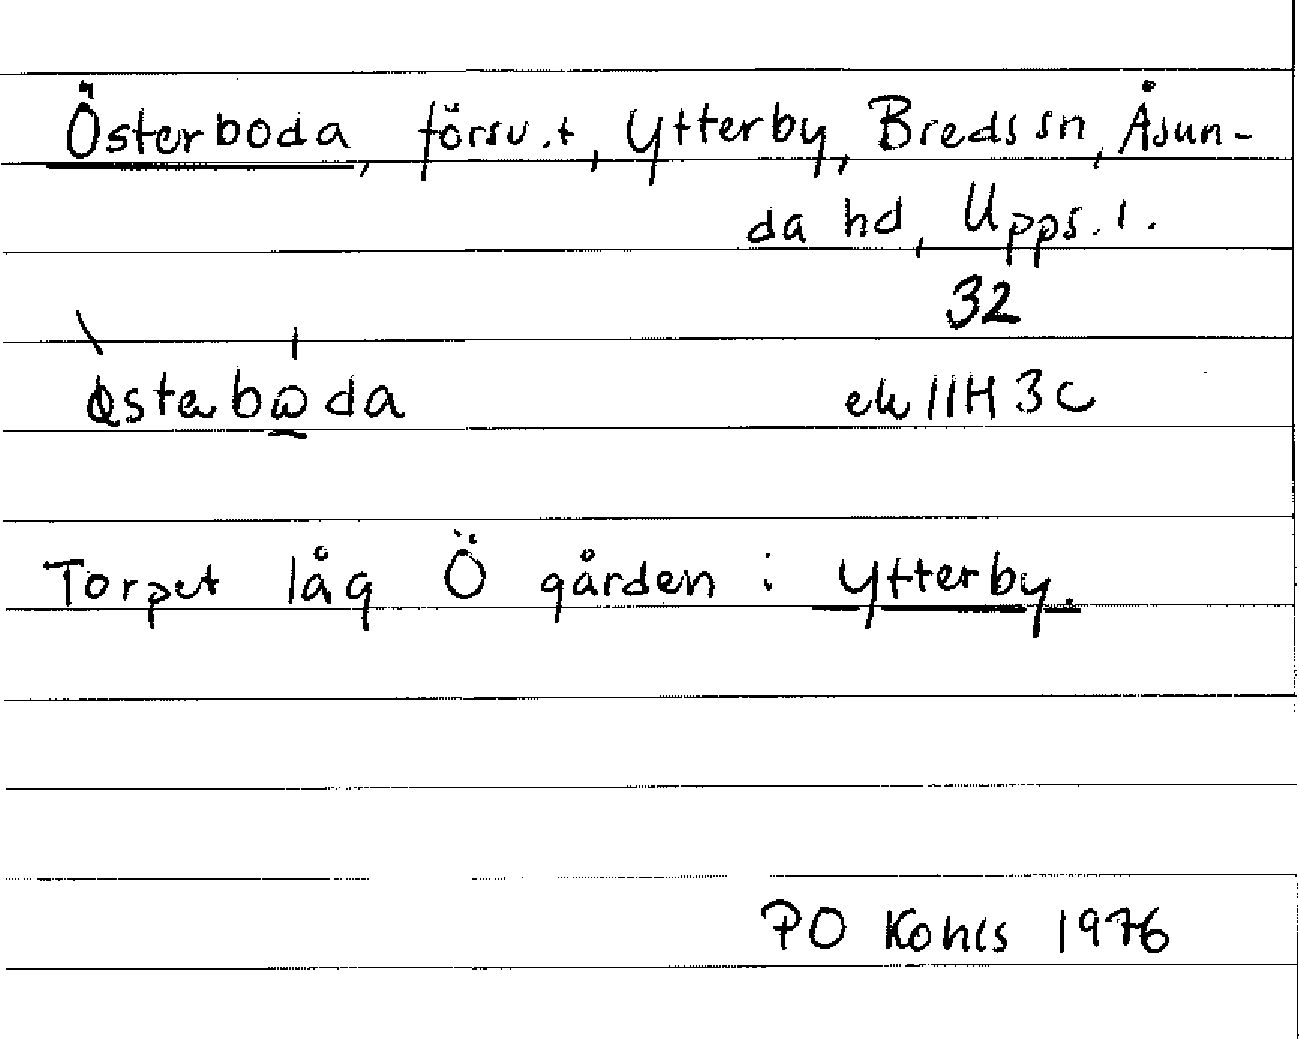 Österboda, försv. t, Ytterby, Breds sn, Åsun-
da hd, Upps. l.
32
ek 11H 3c
Torpet låg Ö gården i Ytterby.
PO Kohls 1976